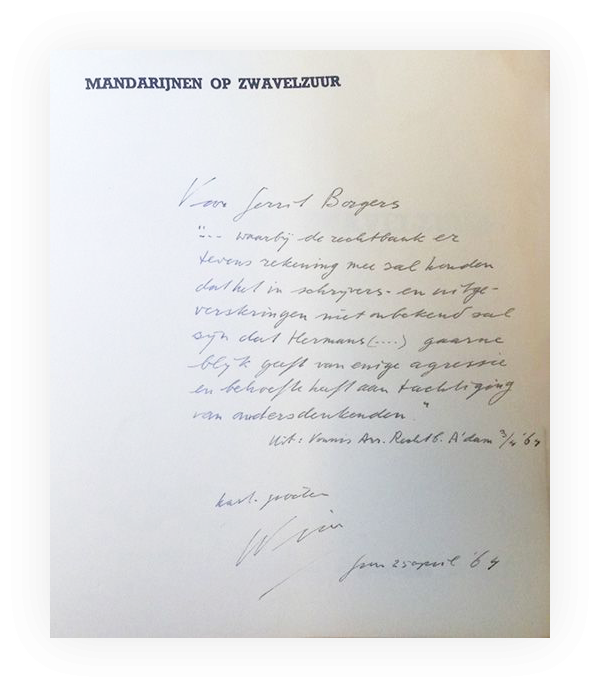 MANDARIJNEN OP ZWAVELZUUR
Voor Gerrit Borgers
"... waarbij de rechtbank er
tevens rekening mee zal houden
dat het in schrijvers- en uitge-
verskringen niet onbekend zal
zijn dat Hermans (....) gaarne
blijk geeft van enige agressie
en behoefte heeft aan tuchtiging
van andersdenkenden."
Uit: Vonnis Arr. Rechtb. A'dam 3/4 '64
hart. groeten
Wim
25 april '64